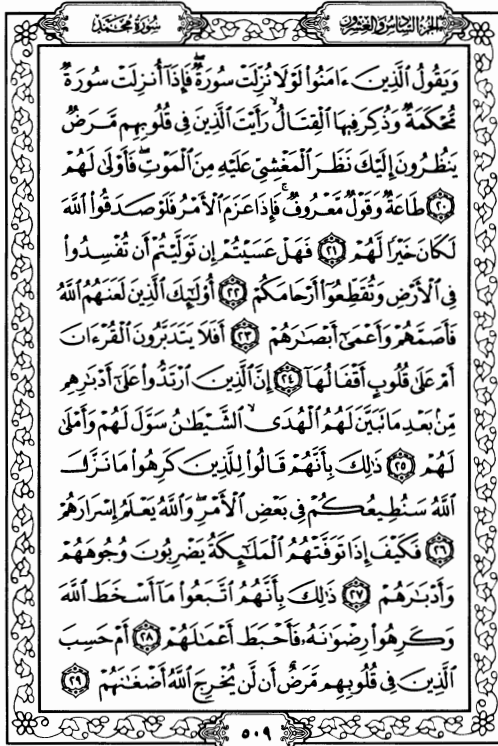 الجزء السادس والعشرون سورة محمد
وَيَقُولُ الَّذِينَ ءَامَنُوا لَوْلَا نُزِّلَتْ سُورَةٌ فَإِذَا أُنزِلَتْ سُورَةٌ
مُّحْكَمَةٌ وَذُكِرَ فِيهَا الْقِتَالُ رَأَيْتَ الَّذِينَ فِي قُلُوبِهِم مَّرَضٌ
يَنظُرُونَ إِلَيْكَ نَظَرَ الْمَغْشِيِّ عَلَيْهِ مِنَ الْمَوْتِ فَأَوْلَىٰ لَهُمْ
٢٠ طَاعَةٌ وَقَوْلٌ مَّعْرُوفٌ فَإِذَا عَزَمَ الْأَمْرُ فَلَوْ صَدَقُوا اللَّهَ
لَكَانَ خَيْرًا لَّهُمْ ٢١ فَهَلْ عَسَيْتُمْ إِن تَوَلَّيْتُمْ أَن تُفْسِدُوا
فِي الْأَرْضِ وَتُقَطِّعُوا أَرْحَامَكُمْ ٢٢ أُولَٰئِكَ الَّذِينَ لَعَنَهُمُ اللَّهُ
فَأَصَمَّهُمْ وَأَعْمَىٰ أَبْصَارَهُمْ ٢٣ أَفَلَا يَتَدَبَّرُونَ الْقُرْءَانَ
أَمْ عَلَىٰ قُلُوبٍ أَقْفَالُهَا ٢٤ إِنَّ الَّذِينَ ارْتَدُّوا عَلَىٰ أَدْبَٰرِهِم
مِّن بَعْدِ مَا تَبَيَّنَ لَهُمُ الْهُدَى الشَّيْطَٰنُ سَوَّلَ لَهُمْ وَأَمْلَىٰ
لَهُمْ ٢٥ ذَٰلِكَ بِأَنَّهُمْ قَالُوا لِلَّذِينَ كَرِهُوا مَا نَزَّلَ
اللَّهُ سَنُطِيعُكُمْ فِي بَعْضِ الْأَمْرِ وَاللَّهُ يَعْلَمُ إِسْرَارَهُمْ
٢٦ فَكَيْفَ إِذَا تَوَفَّتْهُمُ الْمَلَٰئِكَةُ يَضْرِبُونَ وُجُوهَهُمْ
وَأَدْبَٰرَهُمْ ٢٧ ذَٰلِكَ بِأَنَّهُمُ اتَّبَعُوا مَا أَسْخَطَ اللَّهَ
وَكَرِهُوا رِضْوَٰنَهُ فَأَحْبَطَ أَعْمَٰلَهُمْ ٢٨ أَمْ حَسِبَ
الَّذِينَ فِي قُلُوبِهِم مَّرَضٌ أَن لَّن يُخْرِجَ اللَّهُ أَضْغَٰنَهُمْ ٢٩
٥٠٩